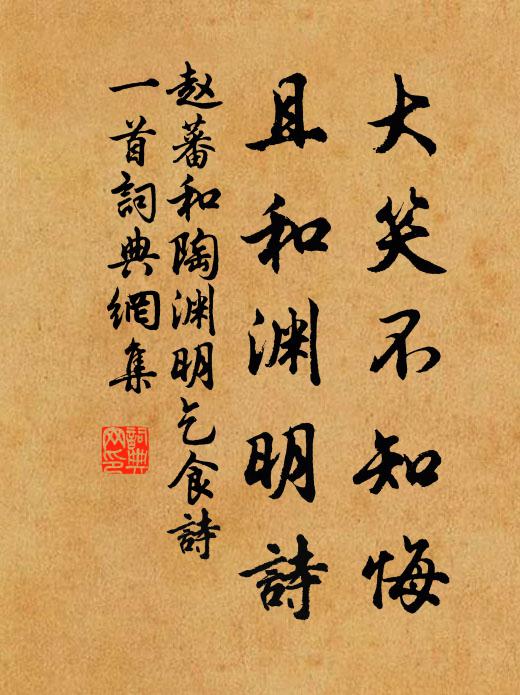 大笑不知悔
且和渊明詩
赵蕃和陶渊明乞食詩
一首詞典網集
詞典網印